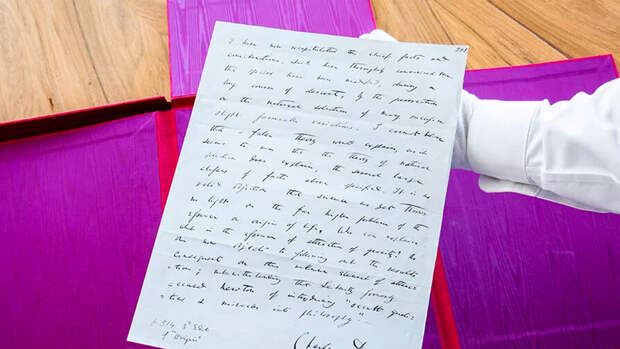 I have now recapitulated the chief facts and
considerations, which have thoroughly convinced me
that species have been modified, during a
long course of descent, by the preservation
or the natural selection of many successive
slight favourable variations. I cannot believe
that a false Theory would explain, as it
seems to me that the theory of natural
selection does explain, the several large
classes of facts above specified. It is no
valid objection that science as yet throws
no light on the far higher problem of the
essence or origin of life. Who can explain
what is the essence of attraction of gravity? No
one now objects to following out the results
consequent on this unknown element of attrac
-tion; notwithstanding that Leibnitz formerly
accused Newton of introducing "occult quali-
-ties & miracles into philosophy."
514 3d Edit
"Origin"
Charles